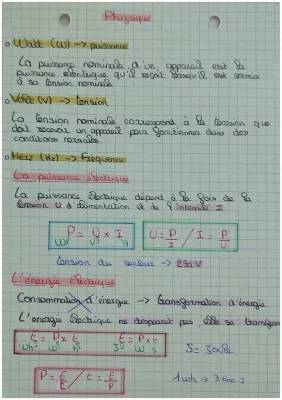 Physique
Watt (W) → puissance
La puissance nominale d'un appareil est la
puissance électrique qu'il reçoit lorsqu'il est soumis
à sa tension nominale
Volt (V) → tension
La tension nominale correspond à la tension que
doit recevoir un appareil pour fonctionner dans des
conditions normales.
Herz (Hz) → Fréquence
La puissance électrique
La puissance électrique dépend à la fois de la
tension U d'alimentation et de l'intensité I
P = U x I
W V A
U = P/I / I = P/U
tension du secteur → 230 V
L'énergie électrique
Consommation d'énergie → transformation d'énergie
L'énergie électrique ne disparait pas, elle se transforme
E = P x t E = P x t
Wh W h J W s
J = Joule
P = E/t / t = E/P
1 Wh → 3600 J